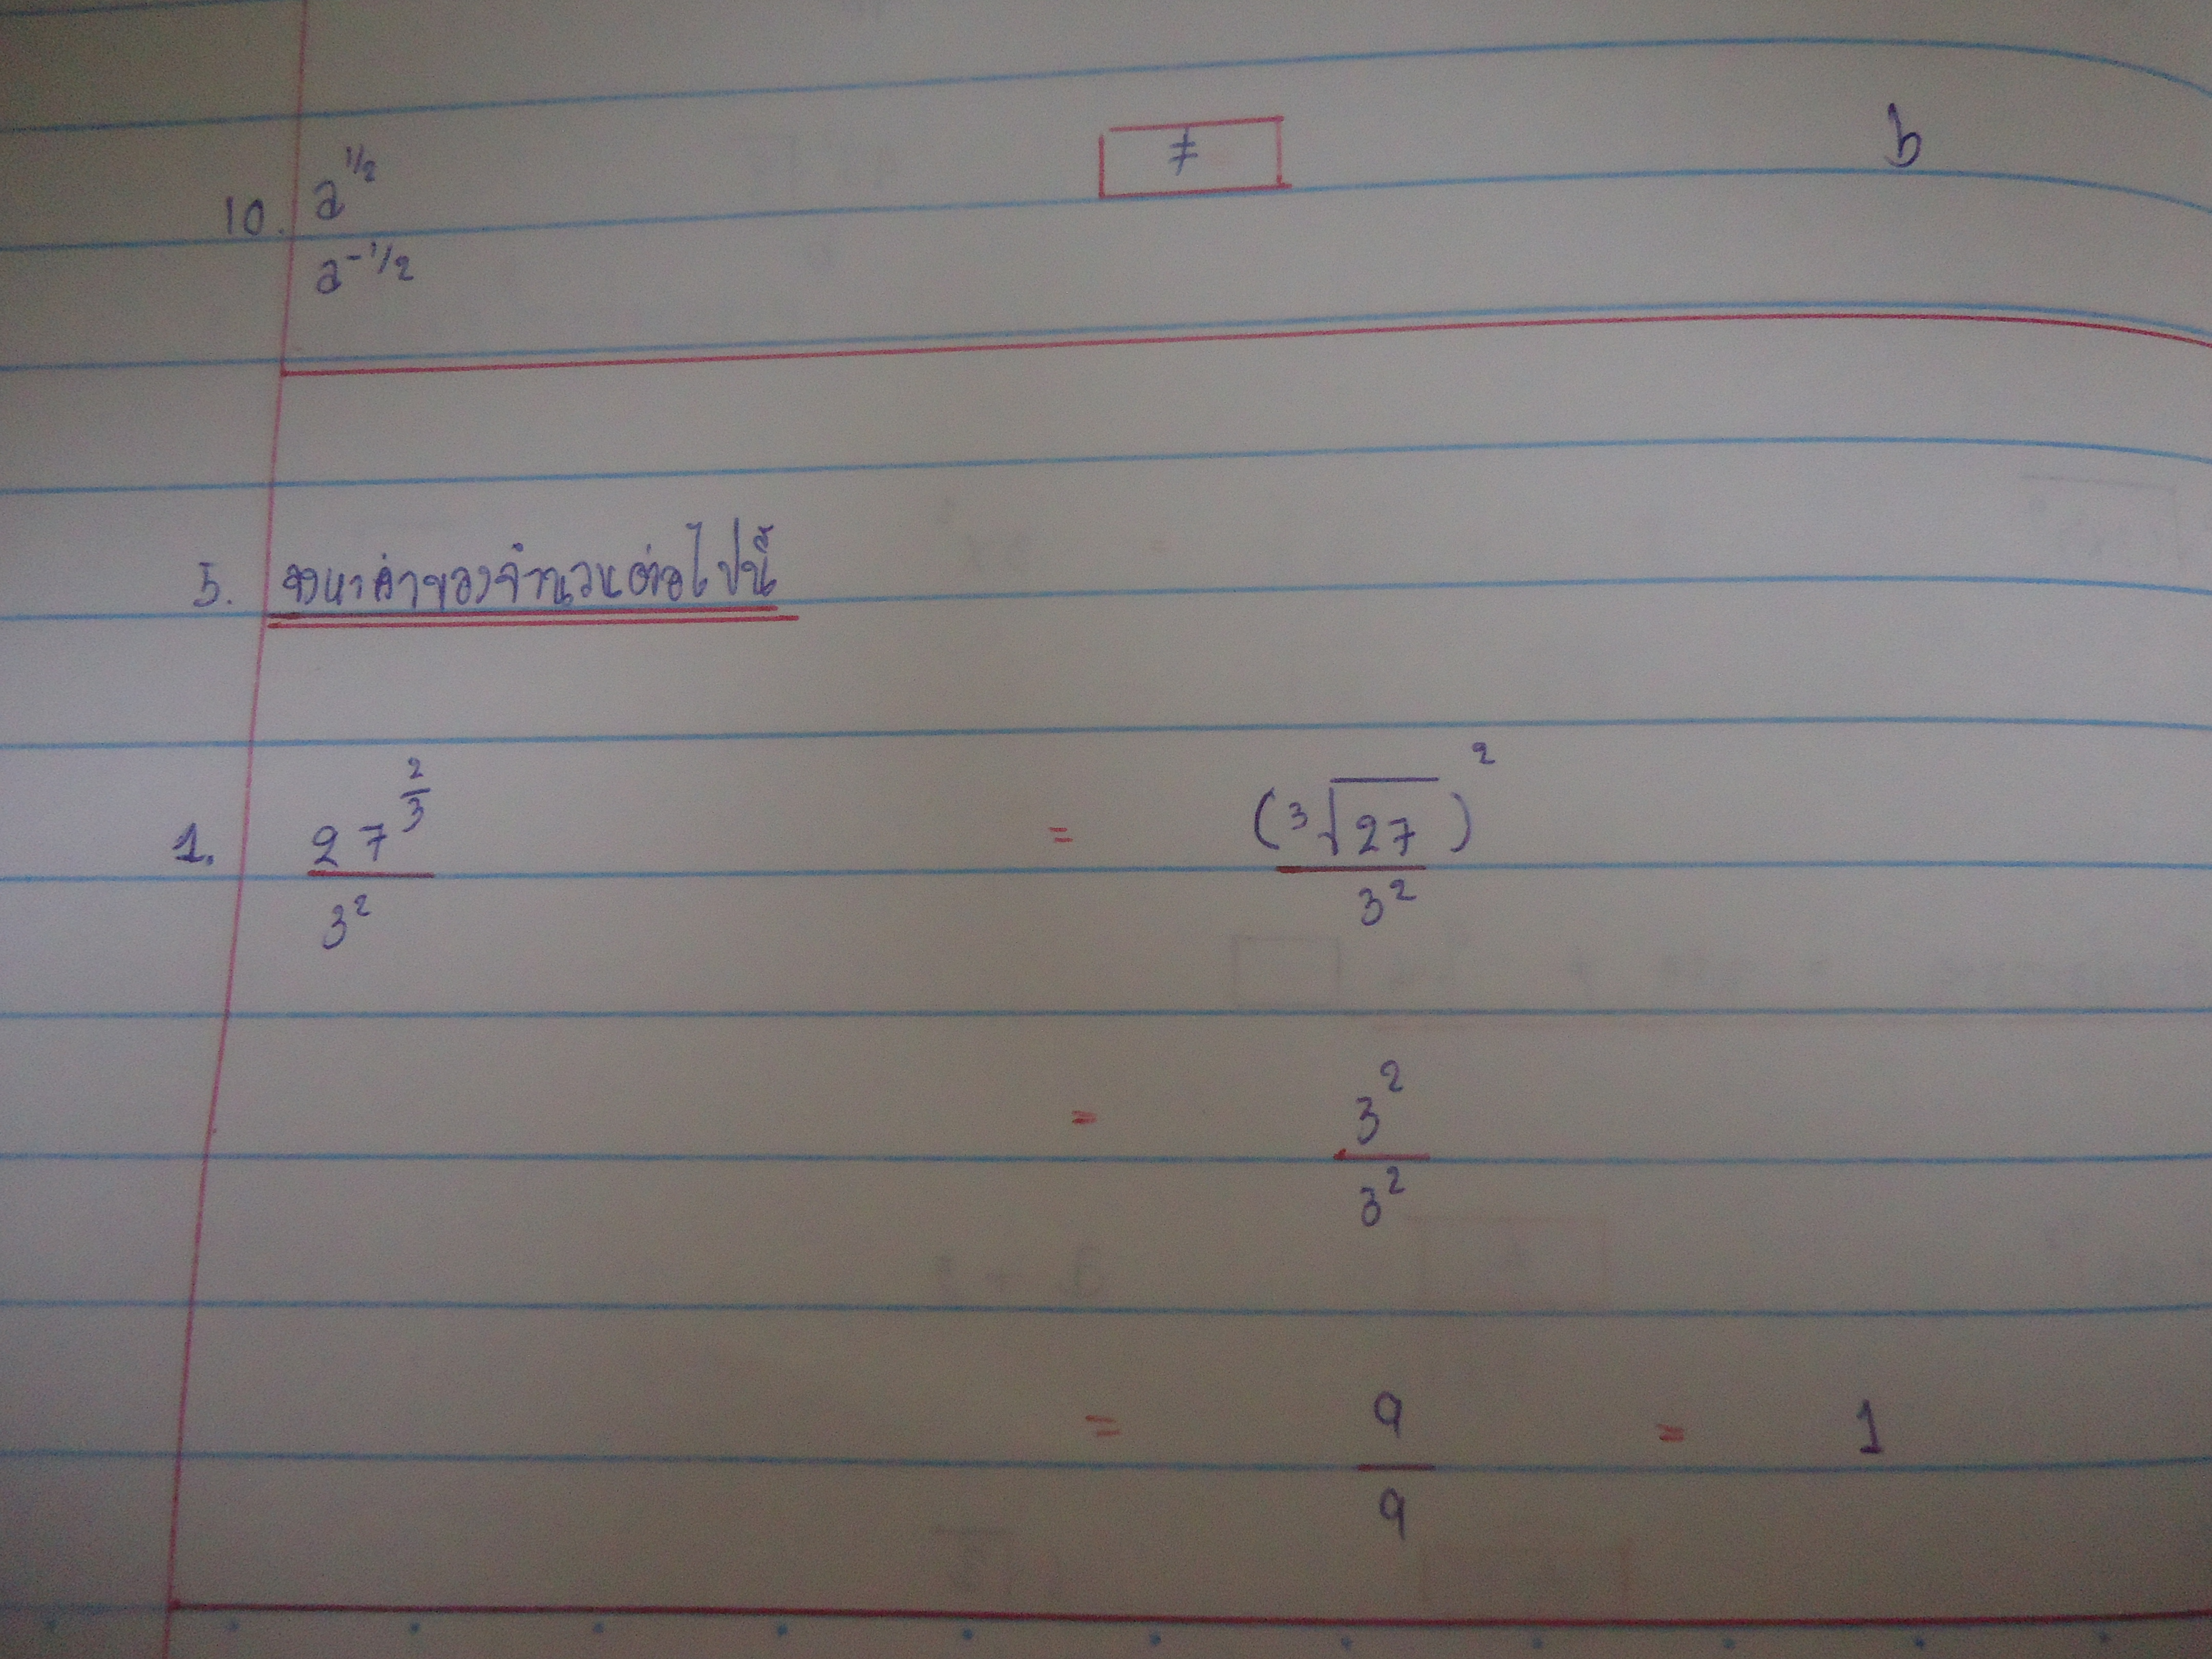 10. a^1/2 / a^-1/2 ≠ b
5. จงหาค่าของจำนวนต่อไปนี้
1. 27^2/3 / 3^2 = (³√27)^2 / 3^2
= 3^2 / 3^2
= 9 / 9 = 1